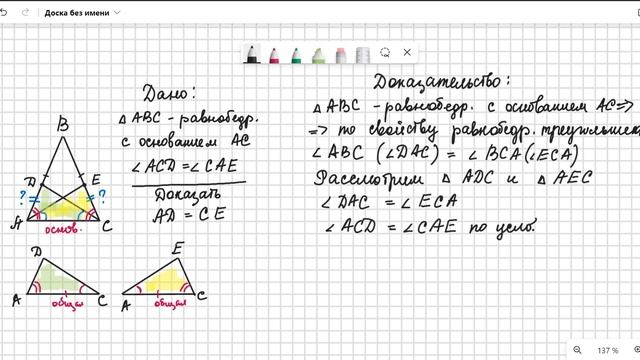 Доска без имени
Дано:
△ ABC - равнобедр.
с основанием AC
∠ACD = ∠CAE
Доказать
AD = CE
B
D E
? = = ?
A C
основ.
D
A C
общая
E
A C
общая
Доказательство:
△ ABC - равнобедр. с основанием AC =>
=> по свойству равнобедр. треугольника
∠ ABC (∠DAC) = ∠ BCA (∠ECA)
Рассмотрим △ ADC и △ AEC
∠ DAC = ∠ ECA
∠ ACD = ∠ CAE по усло
137 %